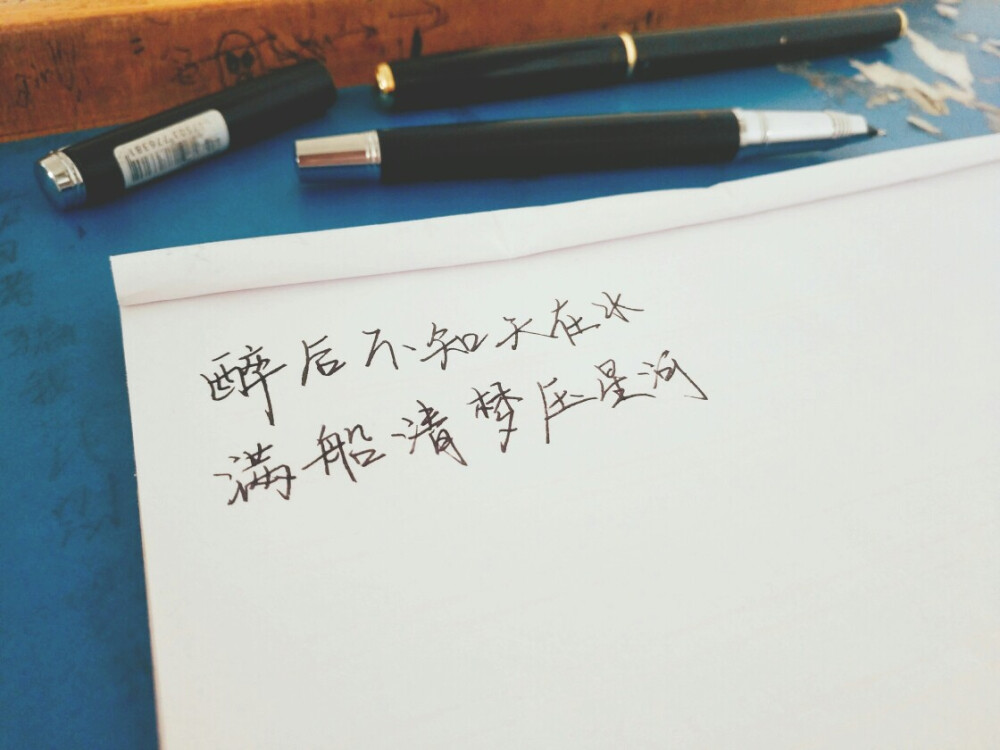 girl
醉后不知天在水
满船清梦压星河